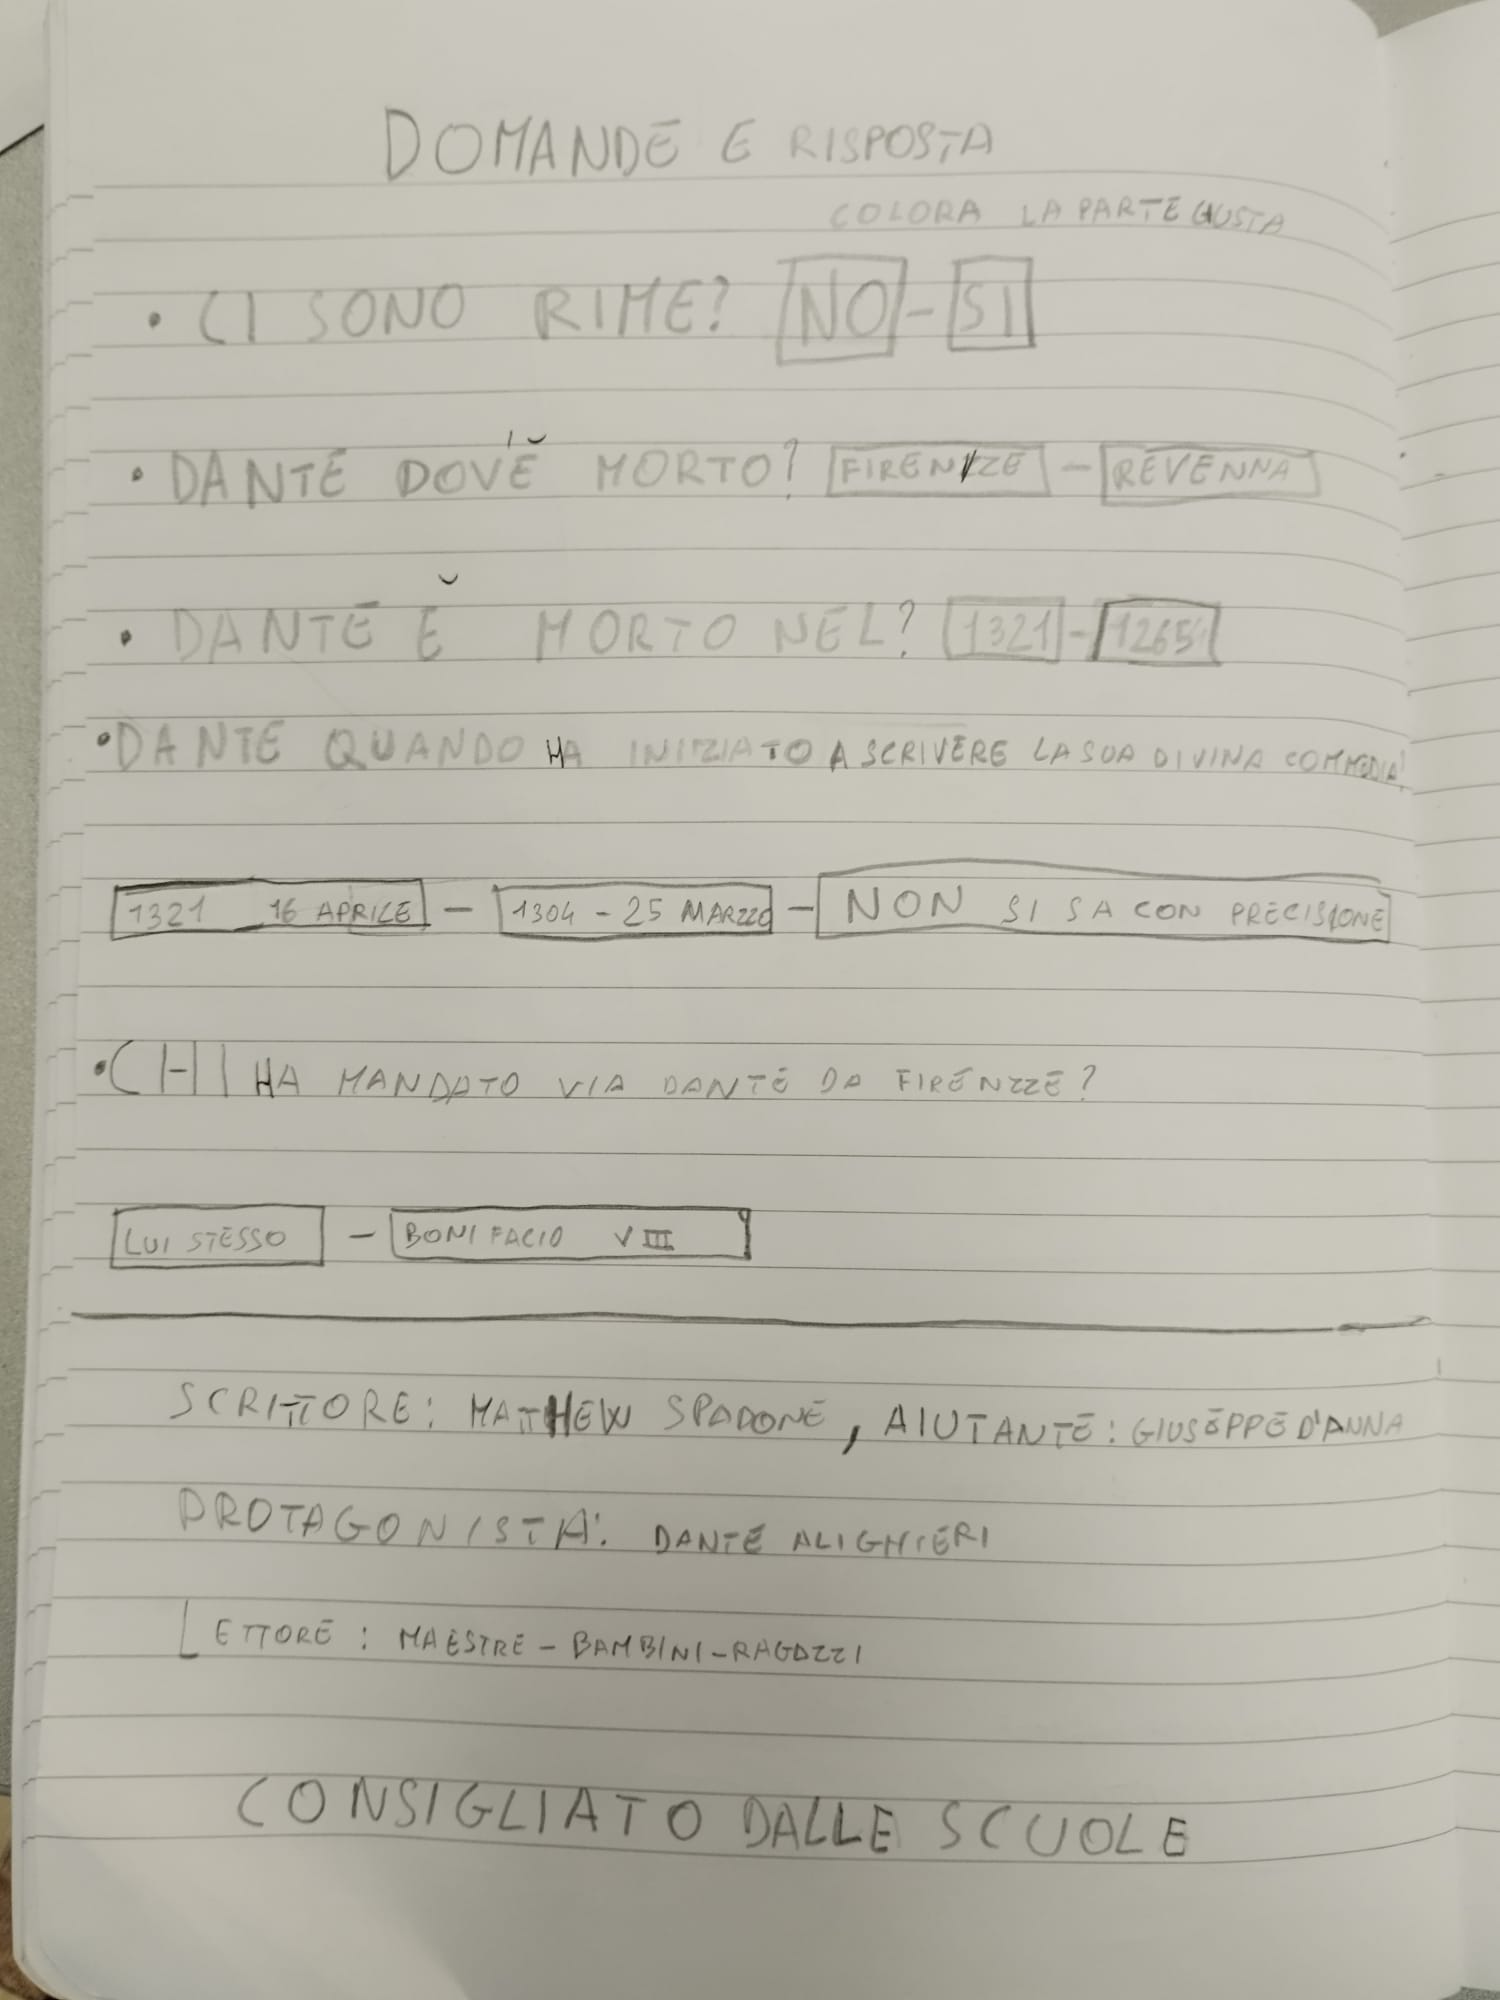 DOMANDE E RISPOSTA
COLORA LA PARTE GIUSTA
• CI SONO RIME? NO - SI
• DANTE DOV'È MORTO? FIRENZE - REVENNA
• DANTE È MORTO NEL? 1321 - 1265
• DANTE QUANDO HA INIZIATO A SCRIVERE LA SUA DIVINA COMMEDIA?
1321 16 APRILE - 1304 - 25 MARZZO - NON SI SA CON PRECISIONE
• CHI HA MANDATO VIA DANTE DA FIRENZZE?
LUI STESSO - BONIFACIO VIII
SCRITTORE: MATTHEW SPADONE, AIUTANTE: GIUSEPPE D'ANNA
PROTAGONISTA: DANTE ALIGHIERI
LETTORE: MAESTRE - BAMBINI - RAGAZZI
CONSIGLIATO DALLE SCUOLE